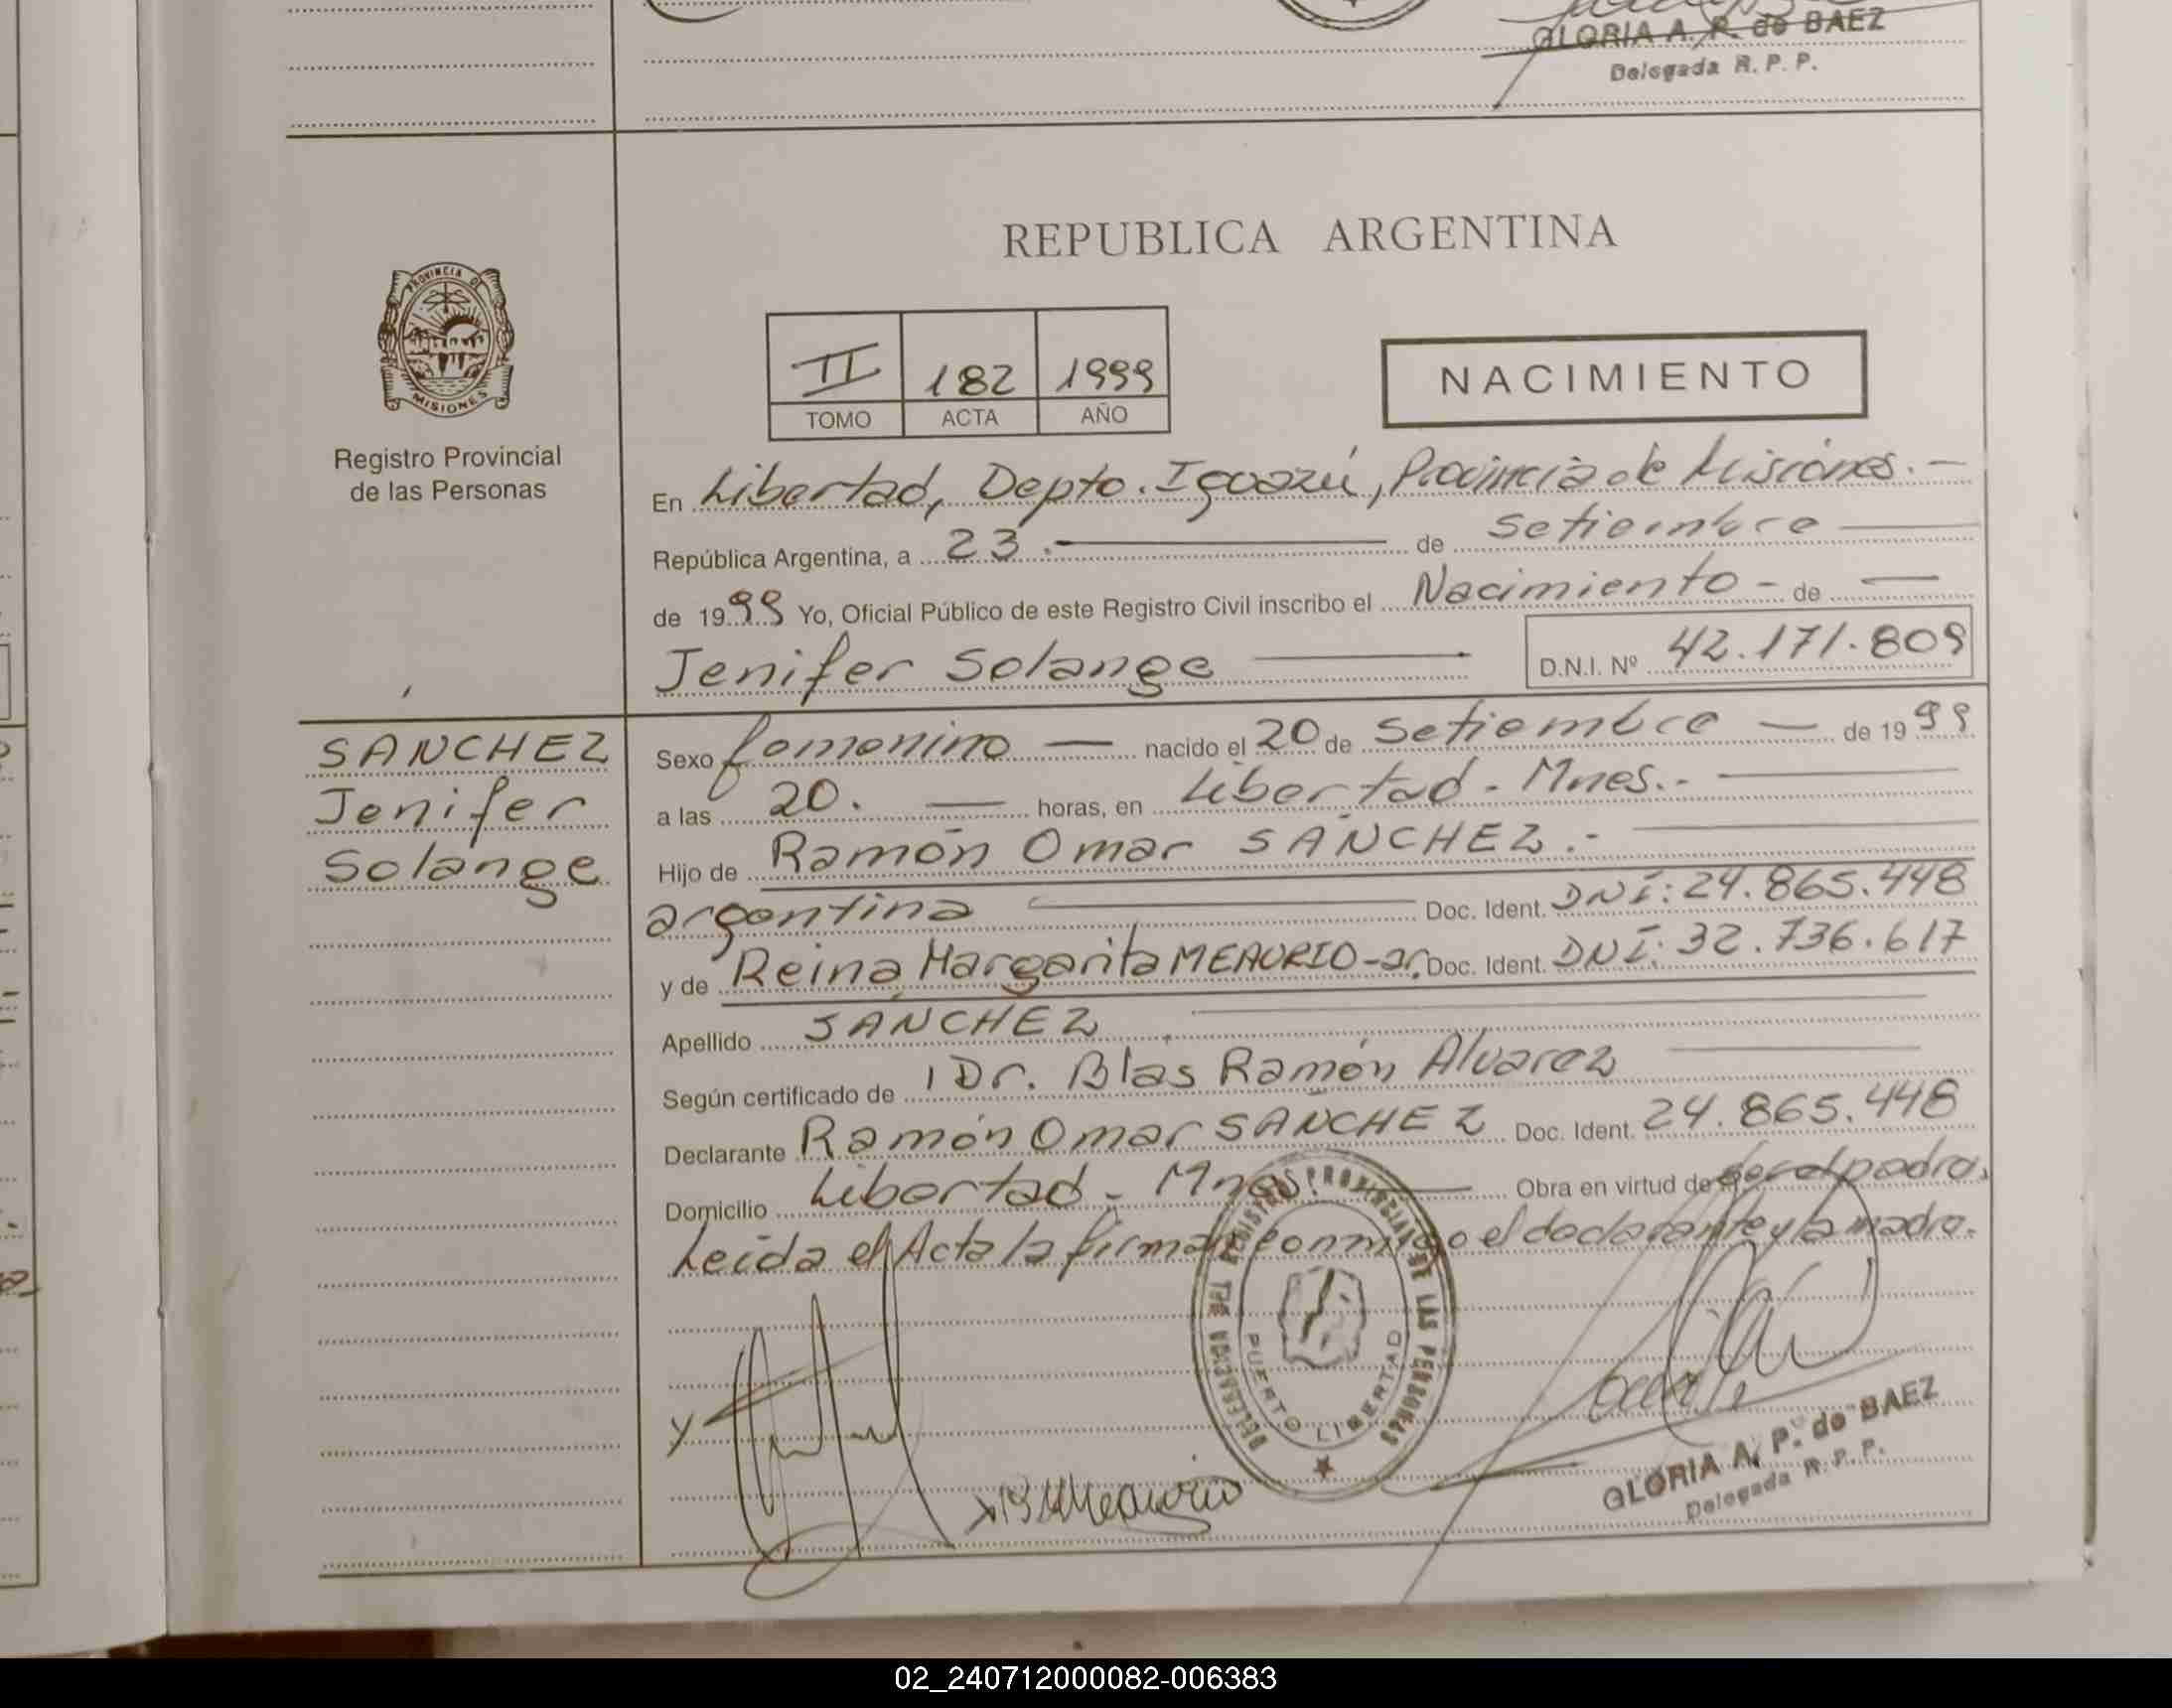 GLORIA A. P. de BAEZ
Delegada R. P. P.
REPUBLICA ARGENTINA
PROVINCIA DE
MISIONES
Registro Provincial
de las Personas
II 182 1999
TOMO ACTA AÑO
NACIMIENTO
En Libertad, Depto. Iguazú, Provincia de Misiones.-
República Argentina, a 23.- de setiembre
de 1999 Yo, Oficial Público de este Registro Civil inscribo el Nacimiento - de
Jenifer Solange
D.N.I. Nº 42.171.809
SANCHEZ
Jenifer
Solange
Sexo femenino nacido el 20 de setiembre de 1999
a las 20. horas, en Libertad - Mnes.-
Hijo de Ramón Omar SANCHEZ.-
argentina Doc. Ident. DNI: 24.865.448
y de Reina Margarita MEAURIO-ar. Doc. Ident. DNI: 32.736.617
Apellido SANCHEZ
Según certificado de Dr. Blas Ramón Alvarez
Declarante Ramón Omar SANCHEZ Doc. Ident. 24.865.448
Domicilio Libertad - Mnes. Obra en virtud de ser el padre.
Leída el Acta la firman conmigo el declarante y la madre.
REGISTRO PROVINCIAL DE LAS PERSONAS
PUERTO LIBERTAD
GLORIA A. P. de BAEZ
Delegada R. P. P.
02_240712000082-006383